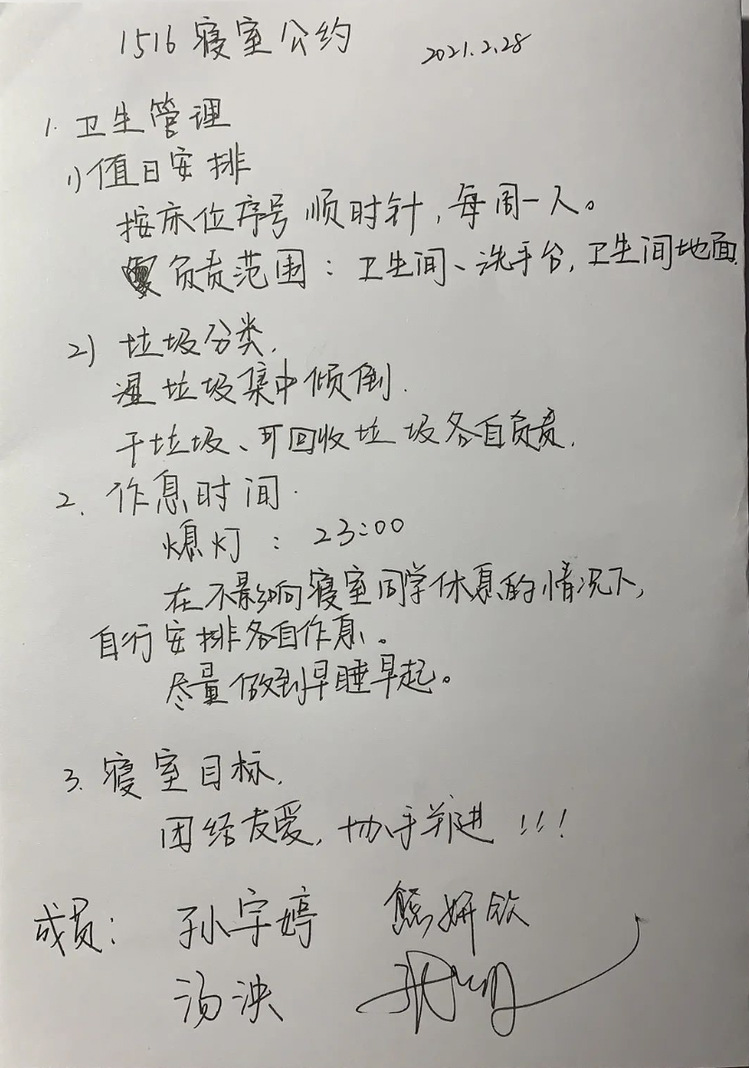 1516寝室公约 2021.2.28
1. 卫生管理
1)值日安排
按床位序号顺时针,每周一人。
负责范围:卫生间、洗手台,卫生间地面.
2) 垃圾分类.
湿垃圾集中倾倒.
干垃圾、可回收垃圾各自负责.
2. 作息时间.
熄灯:23:00
在不影响寝室同学休息的情况下,
自行安排各自作息。
尽量做到早睡早起。
3. 寝室目标.
团结友爱,协手并进!!!
成员:孙宇婷 熊妍钦
汤泱